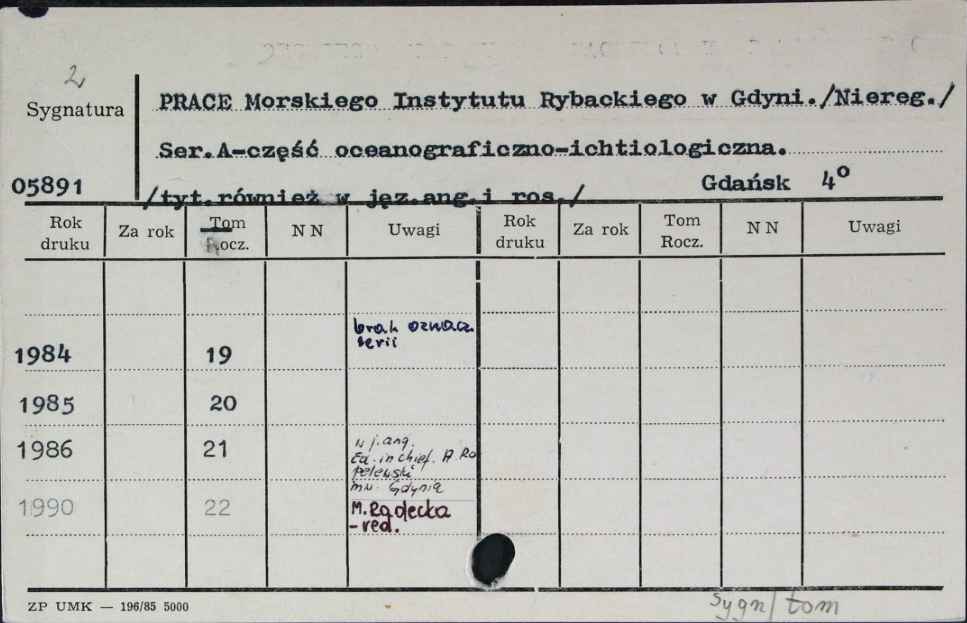 2
Sygnatura
PRACE Morskiego Instytutu Rybackiego w Gdyni./Niereg./
Ser.A-część oceanograficzno-ichtiologiczna.
05891
/tyt.również w jęz.ang.i ros./ Gdańsk 4°
Rok druku Za rok Tom Rocz. N N Uwagi Rok druku Za rok Tom Rocz. N N Uwagi
1984 19 brak oznacz. serii
1985 20
1986 21 w j. ang.
Ed. in chief. A. Ropelewski
Gdynia
1990 22 M. Radecka
- red.
ZP UMK — 196/85 5000
sygn/tom